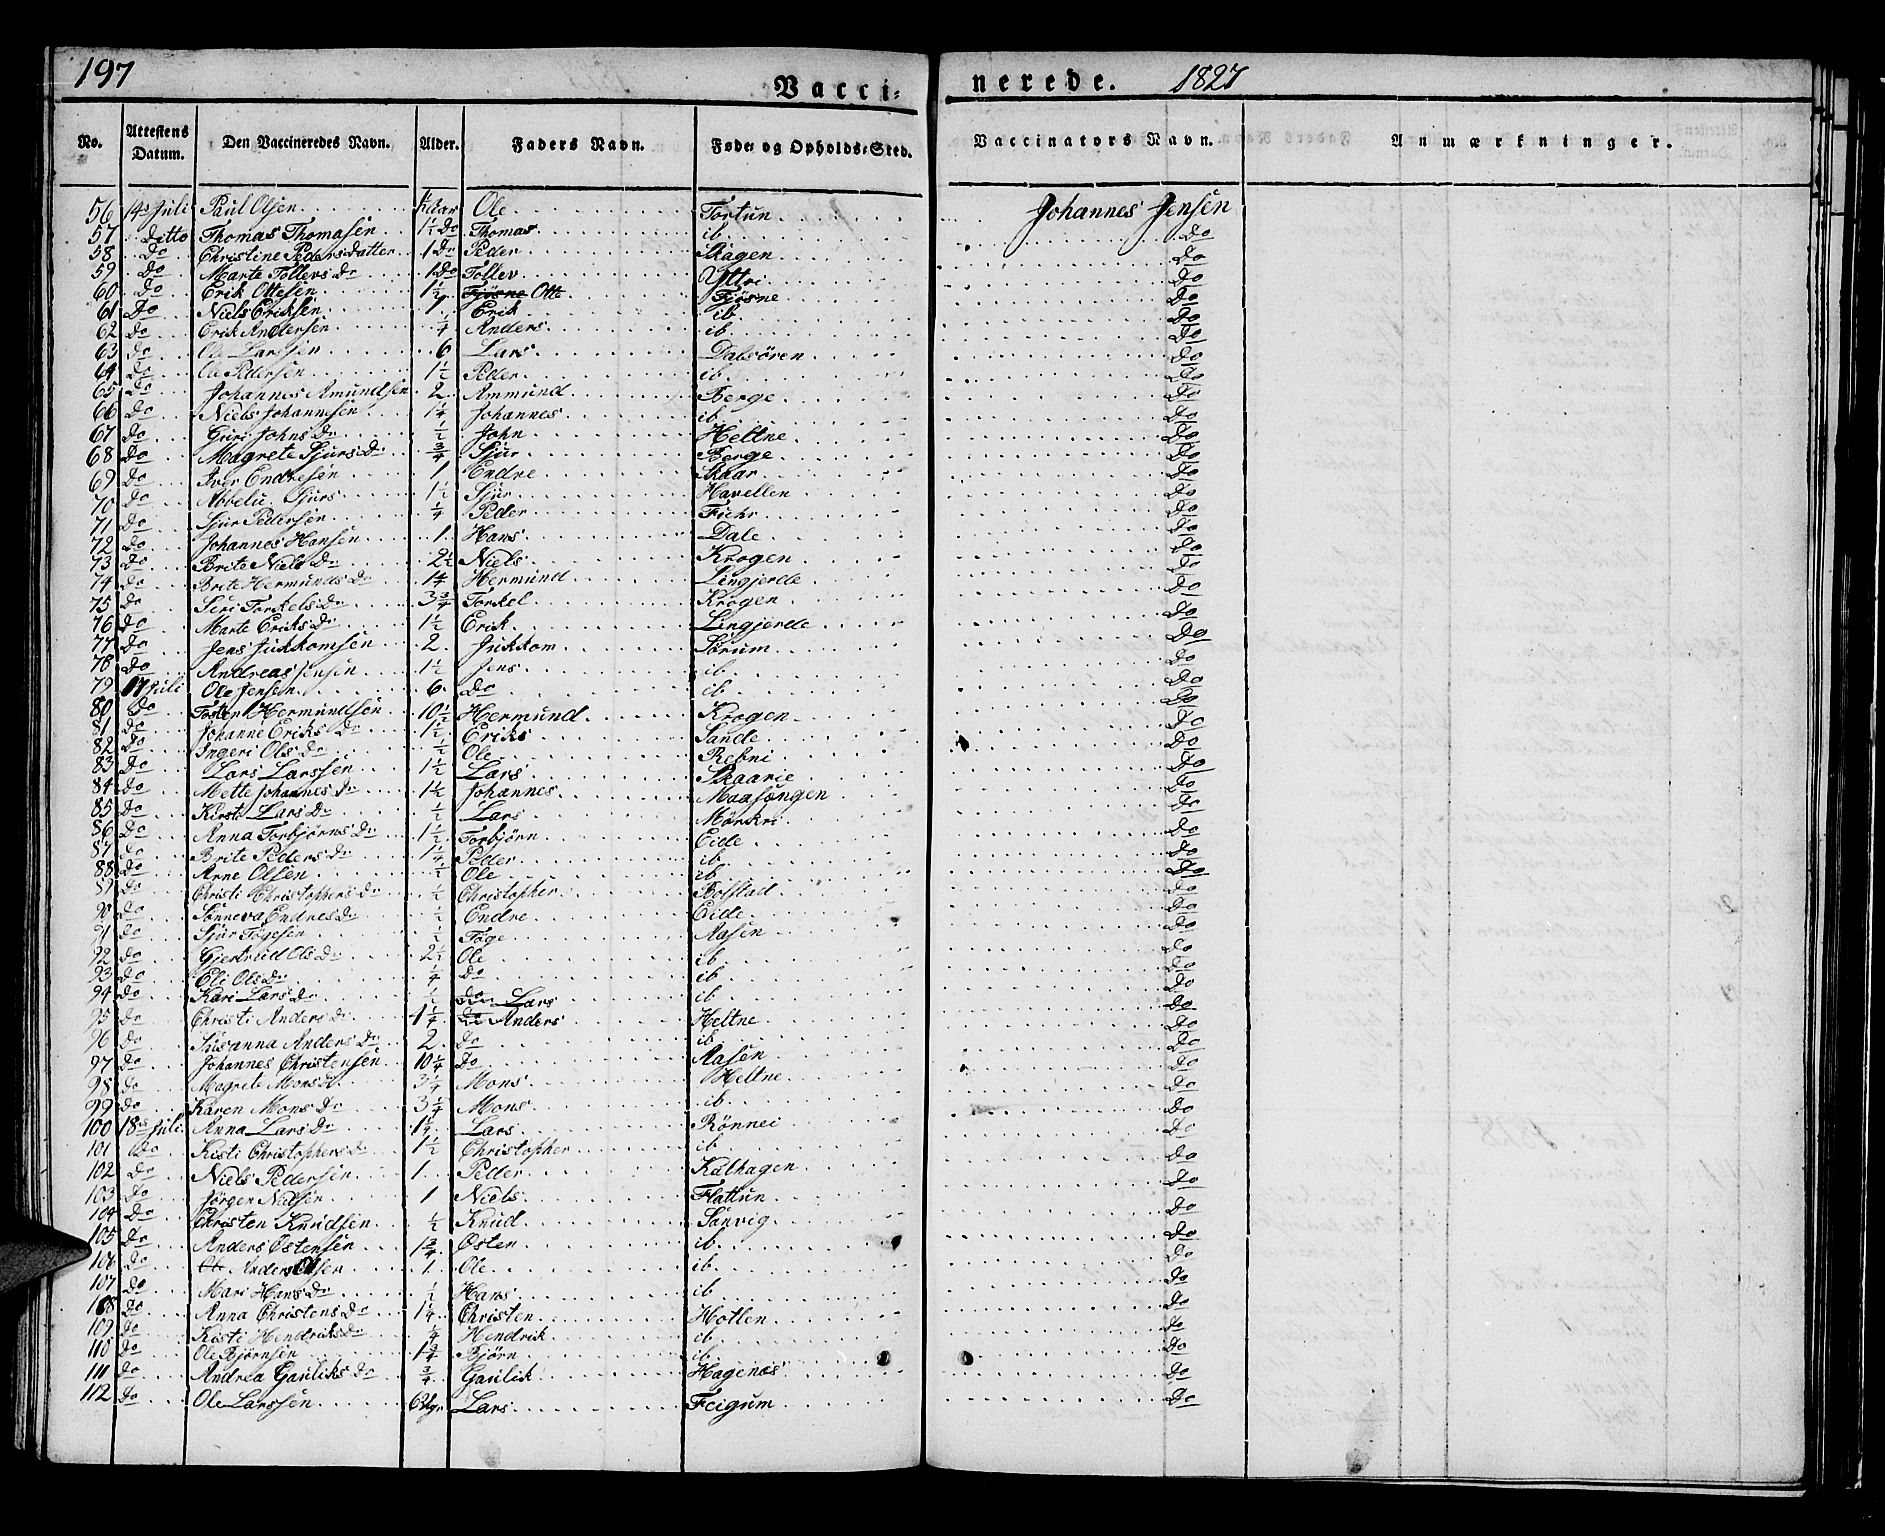 197
Vacci- nerede. 1827
No. Attestens Datum. Den Vaccineredes Navn. Alder. Faders Navn. Føde- og Opholds-Sted. Vaccinators Navn. Anmærkninger.
56 14 Juli Paul Olsen Aar Ole Fortun Johannes Jensen
57 Ditto Thomas Thomasen 1 1/2 Do Thomas ib Do
58 Do Christine Pedersdatter 1 Do Peder Skagen Do
59 Do Marte Tollevs Dr 1 Do Tollev Yttri Do
60 Do Erik Ottesen 1 1/2 Fjøsne Otte Fjøsne Do
61 Do Niels Eriksen 1 Erik ib Do
62 Do Erik Andersen 1/4 Anders ib Do
63 Do Ole Larssen 6 Lars Dalsøren Do
64 Do Ole Pedersen 1 1/2 Peder ib Do
65 Do Johannes Amundsen 2 Ammund Berge Do
66 Do Niels Johannesen 1 1/4 Johannes ib Do
67 Do Guri Johns Dr 1/2 John Heltne Do
68 Do Magrete Sjurs Dr 3/4 Sjur Berge Do
69 Do Iver Endresen 1 Endre Skaar Do
70 Do Abbelu Sjurs 1 1/2 Sjur Havellen Do
71 Do Sjur Pedersen 1/4 Peder Fuhr Do
72 Do Johannes Hansen 1 Hans Dale Do
73 Do Brite Niels Dr 2 1/2 Niels Krogen Do
74 Do Brite Hermunds Dr 1 1/4 Hermund Lingjerde Do
75 Do Siri Torkels Dr 3 3/4 Torkel Krogen Do
76 Do Marte Eriks Dr 1 1/2 Erik Lingjerde Do
77 Do Jens Jukkomsen 2 Jukkom Sørum Do
78 Do Andreas Jensen 1 1/2 Jens ib Do
79 17 Juli Ole Jensen 6 Do ib Do
80 Do Tosten Hermundsen 10 1/2 Hermund Krogen Do
81 Do Johanne Eriks Dr 1 1/2 Eriks Sande Do
82 Do Ingeri Ols Dr 1/2 Ole Rebni Do
83 Do Lars Larssen 1 1/2 Lars Skaarie Do
84 Do Mette Johannes Dr 1 1/2 Johannes Maasøngen Do
85 Do Kirsti Lars Dr 1/2 Lars Mørkri Do
86 Do Anna Torbjørns Dr 1 1/2 Torbjørn Eide Do
87 Do Brite Peders Dr 1 1/4 Peder ib Do
88 Do Arne Olsen 1/2 Ole ib Do
89 Do Christi Christophers Dr 1/2 Christopher Bolstad Do
90 Do Sønneva Endres Dr 1/2 Endre Eide Do
91 Do Sjur Tøgesen 1/2 Tøge Aasen Do
92 Do Gjertrud Ols Dr 2 1/2 Ole ib Do
93 Do Eli Ols Dr 1/4 Do ib Do
94 Do Kari Lars Dr 1/2 Do Lars ib Do
95 Do Christi Anders Dr 1 1/4 Do Anders Heltne Do
96 Do Susanna Anders Dr 2 Do ib Do
97 Do Johannes Christensen 10 1/4 Do Aasen Do
98 Do Magrete Mons d 3 1/4 Mons Heltne Do
99 Do Karen Mons Dr 3 1/4 Mons ib Do
100 18 Juli Anna Lars Dr 1 1/4 Lars Rønnei Do
101 Do Kisti Christophers Dr 1 1/2 Christopher ib Do
102 Do Niels Pedersen 1 Peder Kalhagen Do
103 Do Jørgen Nielsen 1 Niels Flattun Do
104 Do Christen Knudsen 1/2 Knud Sanvig Do
105 Do Anders Østensen 1 3/4 Østen ib Do
106 Do Ole Anders Olsen 1 Ole ib Do
107 Do Mari Hans Dr 1/2 Hans ib Do
108 Do Anna Christens Dr 1 1/4 Christen Hotlen Do
109 Do Kisti Hendriks Dr 1/4 Hendrik ib Do
110 Do Ole Bjørnsen 1 3/4 Bjørn ib Do
111 Do Andrea Gauliks Dr 3/4 Gaulik Hagenes Do
112 Do Ole Larssen 6 Ugr Lars Feigum Do